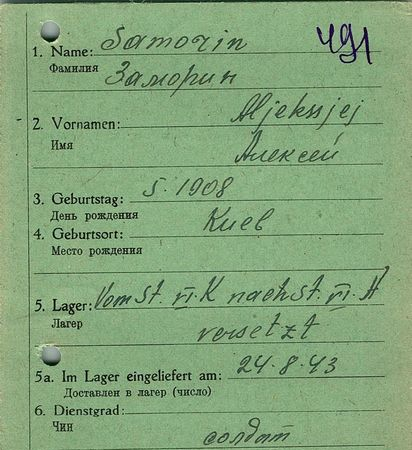 491
1. Name: Samorin
Фамилия Заморин
2. Vornamen: Aljekssjej
Имя Алексей
3. Geburtstag: 5.1908
День рождения
4. Geburtsort: Киев
Место рождения
5. Lager: Vom St. VI. K nach St. VI. A
Лагер versetzt
5a. Im Lager eingeliefert am: 24.8.43
Доставлен в лагер (число)
6. Dienstgrad:
Чин солдат